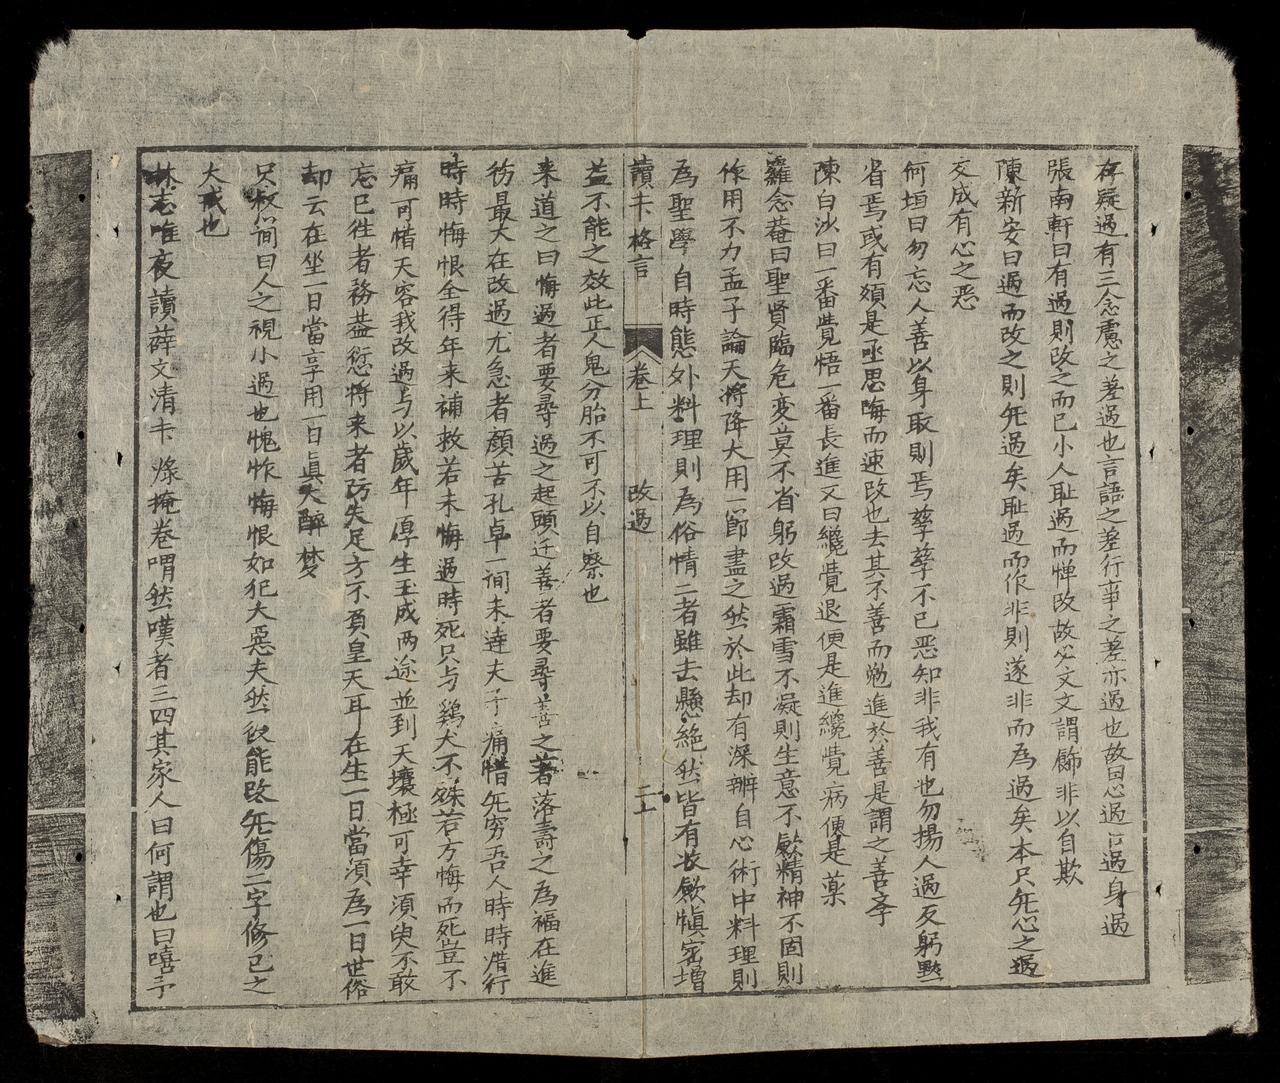 存疑過有三念慮之差過也言語之差行事之差亦過也故曰心過口過身過
張南軒曰有過則改之而已小人耻過而憚改故必文文謂餙非以自欺
陳新安曰過而改之則旡過矣耻過而作非則遂非而為過矣本只旡心之過
交成有心之恶
何垣曰勿忘人善以身取則焉孳孳不已恶知非我有也勿揚人過反躬黙
省焉或有類是亟思晦而速改也去其不善而勉進於善是謂之善亭
陳白沙曰一番覺悟一番長進又曰纔覺退便是進纔覺病便是薬
羅念菴曰聖賢臨危変莫不省躬改過霜雪不凝則生意不歛精神不固則
作用不力孟子論天將降大用一節盡之然於此却有深辨自心術中料理則
為聖學自時態外料理則為俗情二者雖去懸絶然皆有收歛愼宻增
讀 格言 卷上 改過 二十
益不能之效此正人鬼分胎不可不以自察也
来道之曰悔過者要尋過之起頭迁善者要尋善之著落壽之為福在進
彷最大在改過尤急者顔苦孔卓一间未達夫子痛惜旡穷吾人時時借行
時時悔恨全得年来補救若未悔過時死只与鷄犬不殊若方悔而死豈不
痛可惜天容我改過与以歲年厚生玉成两途並到天壤極可幸須臾不敢
忘已徃者務葢愆将来者防失足方不負皇天耳在生一日當須為一日世俗
却云在坐一日當享用一日眞大醉梦
只叔简曰人之視小過也愧怍悔恨如犯大惡夫然後能改旡傷二字修己之
大戒也
林志唯夜讀薛文清 條掩卷喟然嘆者三四其家人曰何謂也曰嘻予